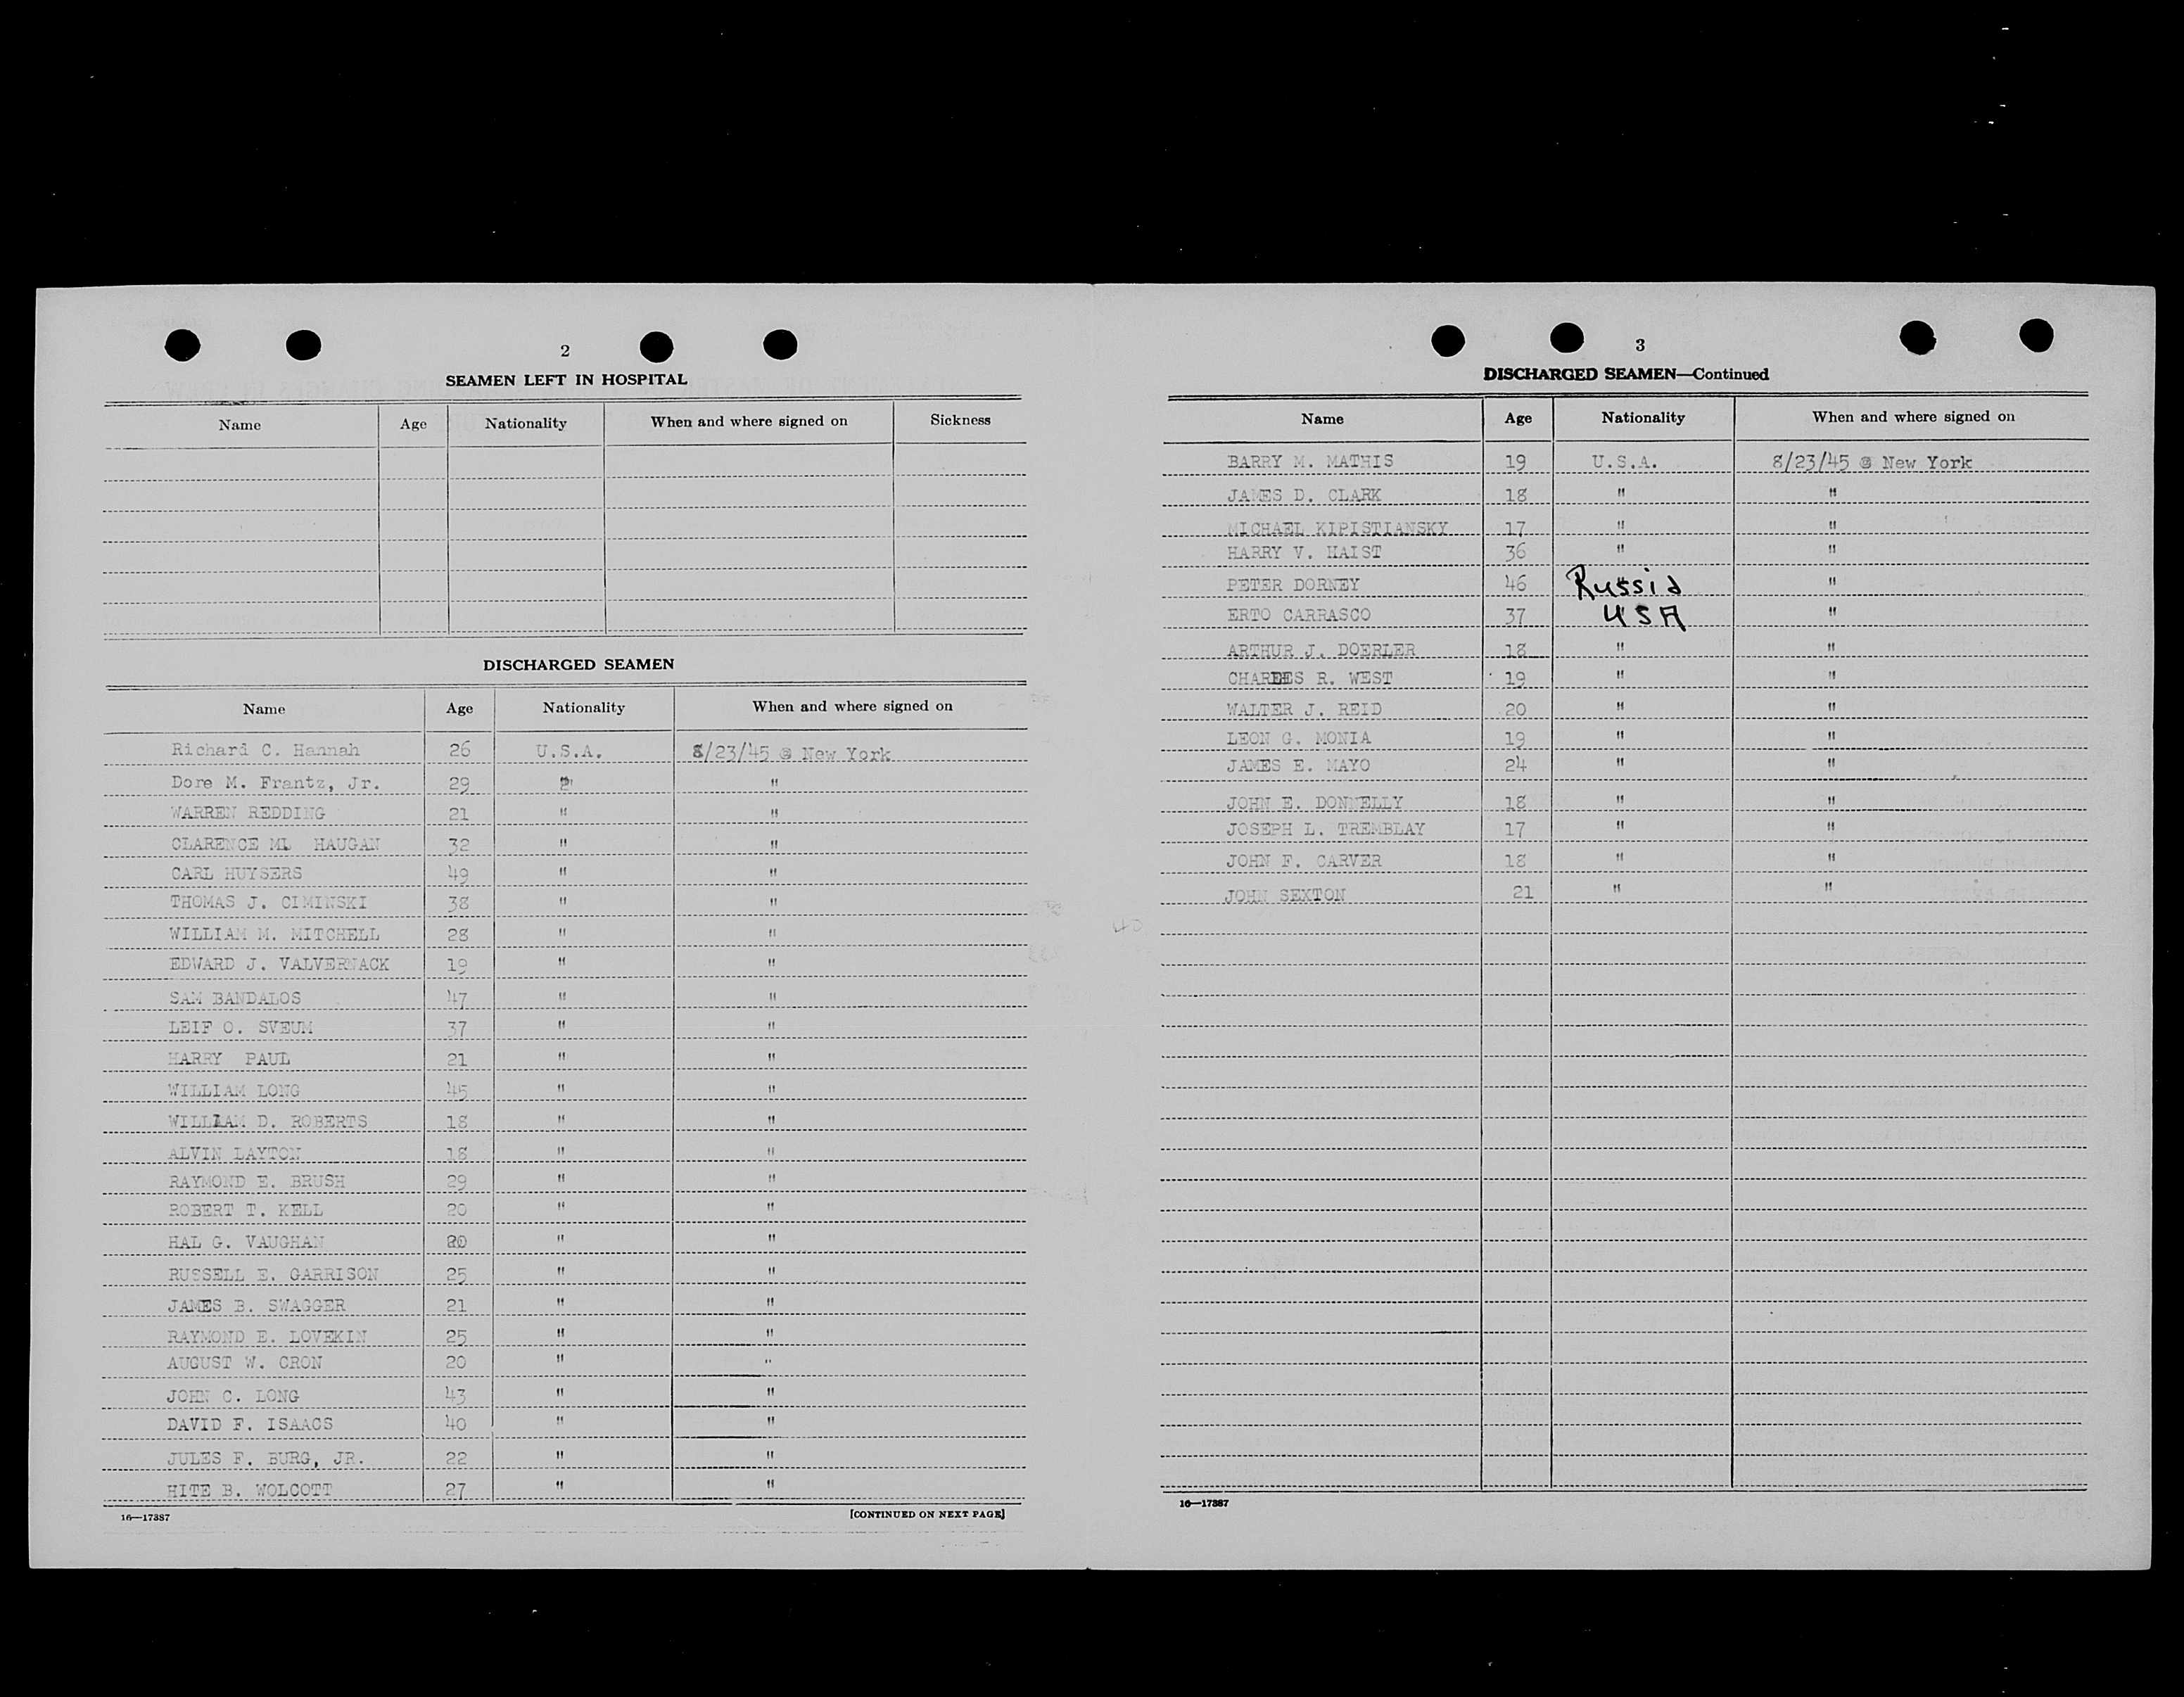 2
SEAMEN LEFT IN HOSPITAL
Name Age Nationality When and where signed on Sickness
DISCHARGED SEAMEN
Name Age Nationality When and where signed on
Richard C. Hannah 26 U.S.A. 8/23/45 @ New York
Dore M. Frantz, Jr. 29 " "
WARREN REDDING 21 " "
CLARENCE M. HAUGAN 32 " "
CARL HUYSERS 49 " "
THOMAS J. CIMINSKI 38 " "
WILLIAM M. MITCHELL 28 " "
EDWARD J. VALVERNACK 19 " "
SAM BANDALOS 47 " "
LEIF O. SVEUM 37 " "
HARRY PAUL 21 " "
WILLIAM LONG 45 " "
WILLIAM D. ROBERTS 18 " "
ALVIN LAYTON 18 " "
RAYMOND E. BRUSH 29 " "
ROBERT T. KELL 20 " "
HAL G. VAUGHAN 20 " "
RUSSELL E. GARRISON 25 " "
JAMES B. SWAGGER 21 " "
RAYMOND E. LOVEKIN 25 " "
AUGUST W. CRON 20 " "
JOHN C. LONG 43 " "
DAVID F. ISAACS 40 " "
JULES F. BURG, JR. 22 " "
HITE B. WOLCOTT 27 " "
16—17387 [CONTINUED ON NEXT PAGE]
3
DISCHARGED SEAMEN—Continued
Name Age Nationality When and where signed on
BARRY M. MATHIS 19 U.S.A. 8/23/45 @ New York
JAMES D. CLARK 18 " "
MICHAEL KIPISTIANSKY 17 " "
HARRY V. HAIST 36 " "
PETER DORNEY 46 Russia "
ERTO CARRASCO 37 USA "
ARTHUR J. DOERLER 18 " "
CHARLES R. WEST 19 " "
WALTER J. REID 20 " "
LEON G. MONIA 19 " "
JAMES E. MAYO 24 " "
JOHN E. DONNELLY 18 " "
JOSEPH L. TREMBLAY 17 " "
JOHN F. CARVER 18 " "
JOHN SEXTON 21 " "
40
16—17387